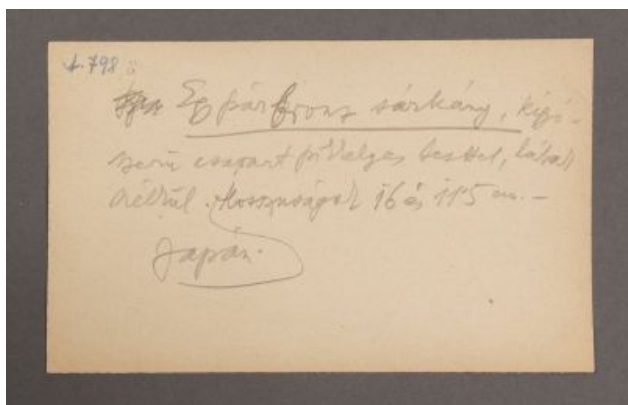 L.798
Egy pár bronz sárkány, kigyó-
szerü csavart pikkelyes testtel, lábak
nélkül. Hosszuságok 16 és 11·5 cm. –
Japán.